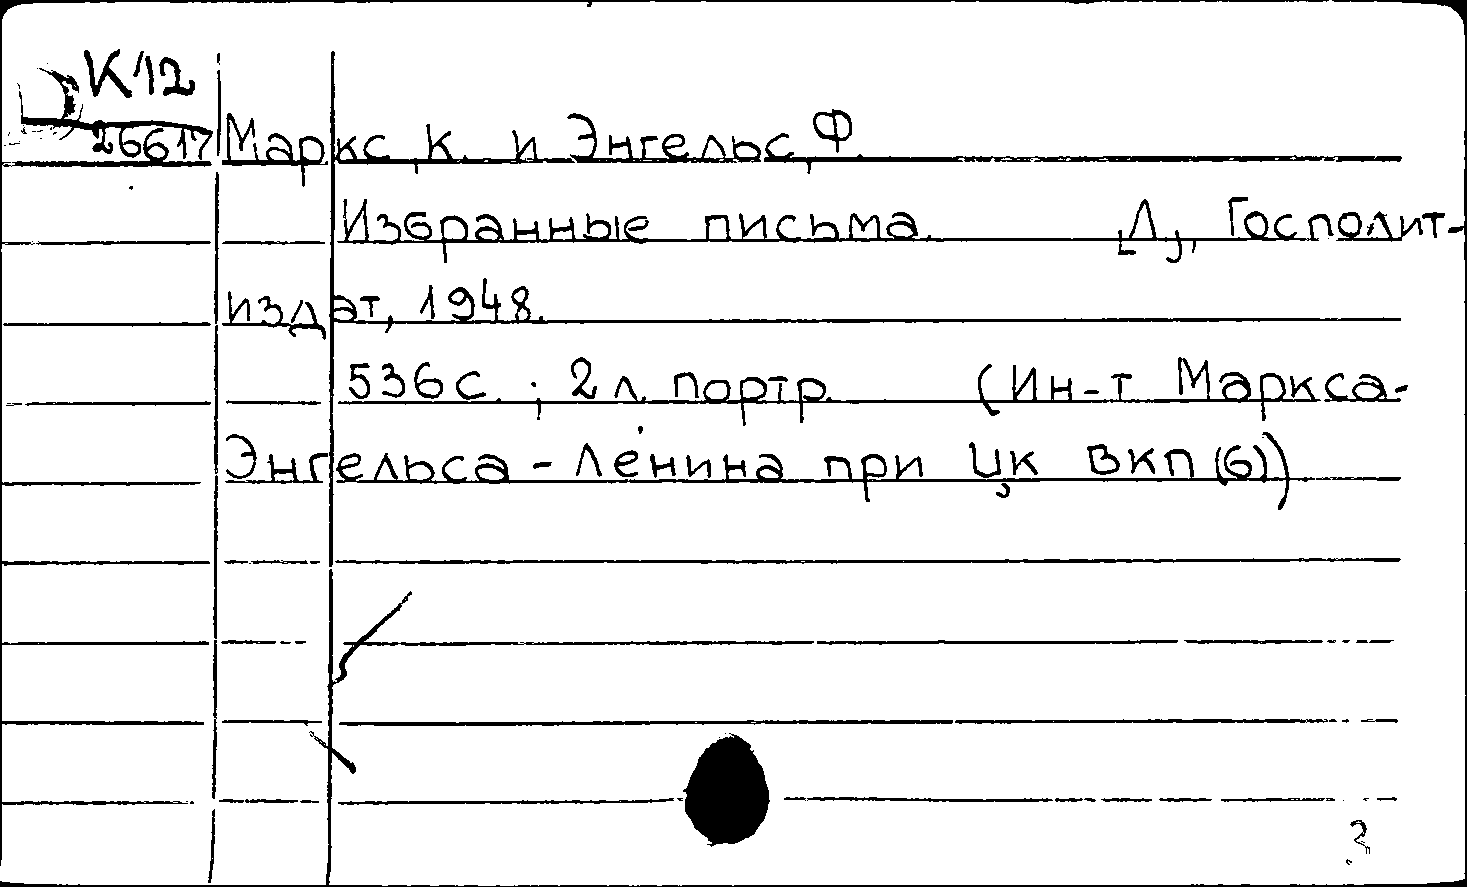 К12
26617
Маркс, К. и Энгельс, Ф.
Избранные письма. [Л.], Госполит-
издат, 1948.
536 с.; 2 л. портр. (Ин-т Маркса-
Энгельса-Ленина при ЦК ВКП(б))